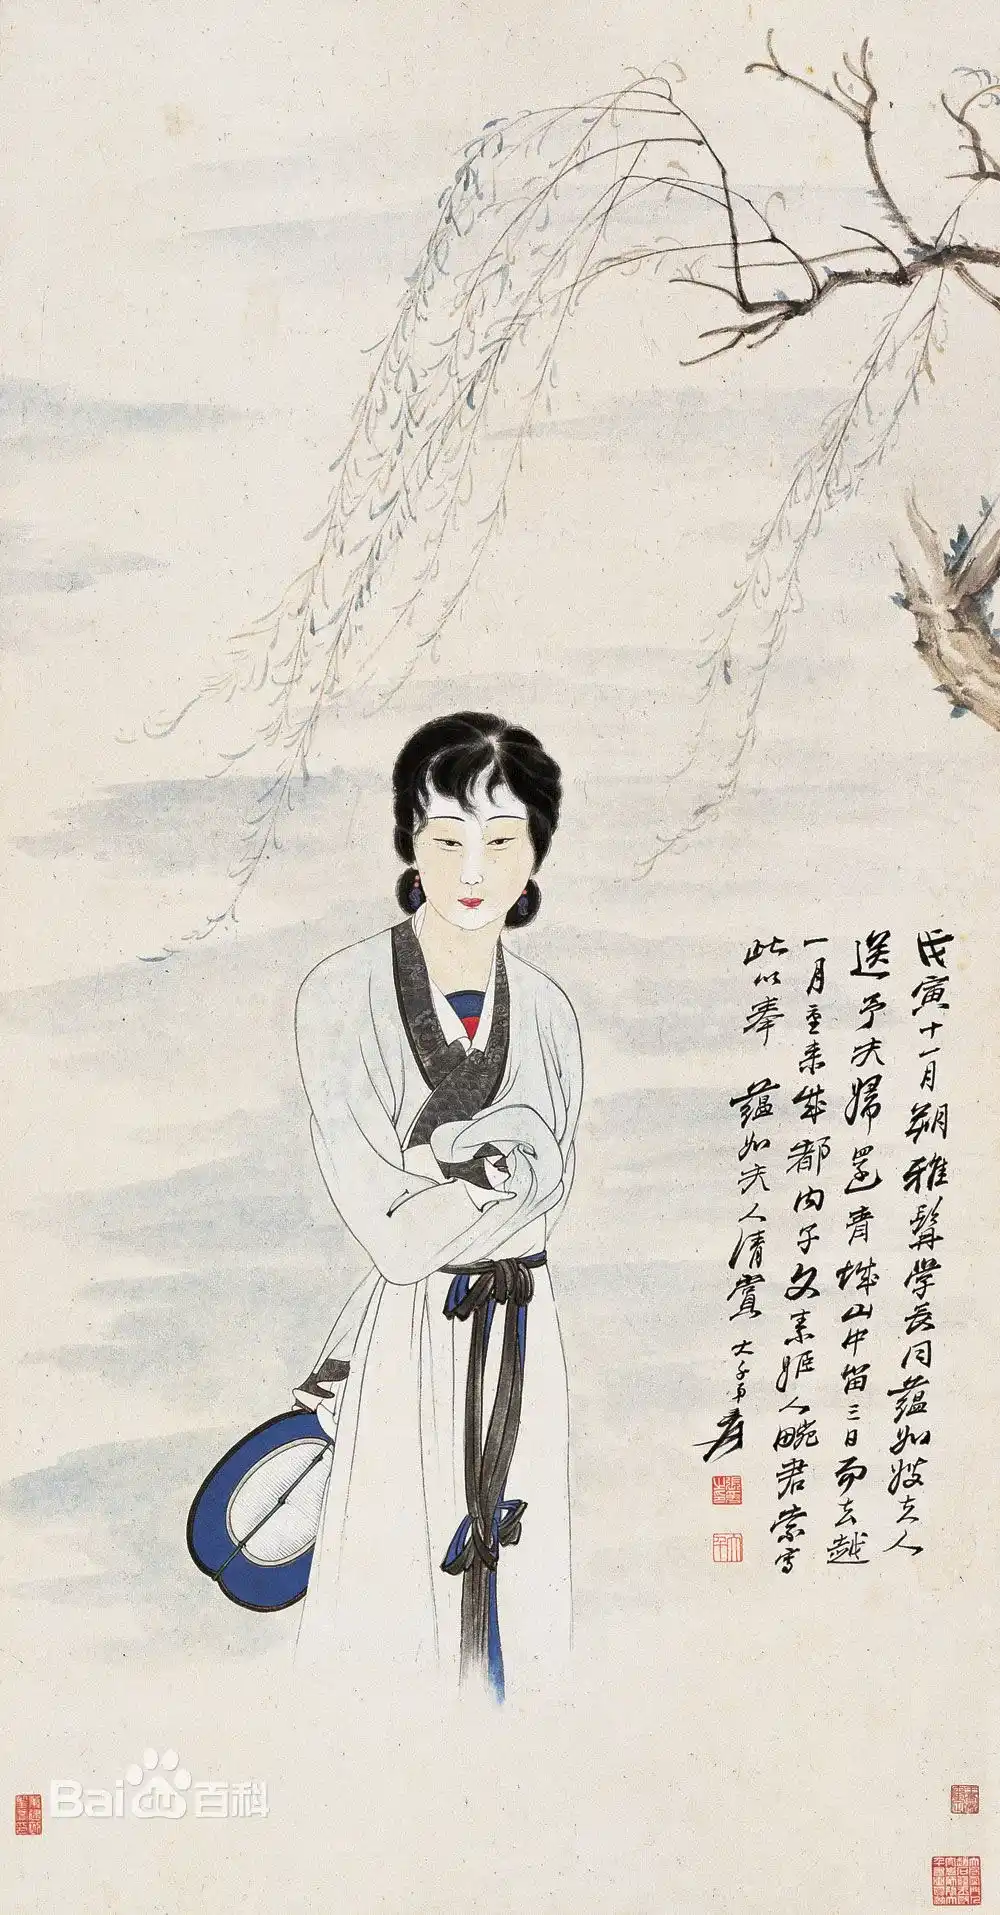 戊寅十一月朔雅髯学长同蕴如嫂夫人
送予夫婦還青城山中留三日而去越
一月重来成都内子文素姬人畹君索写
此以奉　蕴如夫人清賞　大千弟爰
Bai 百科